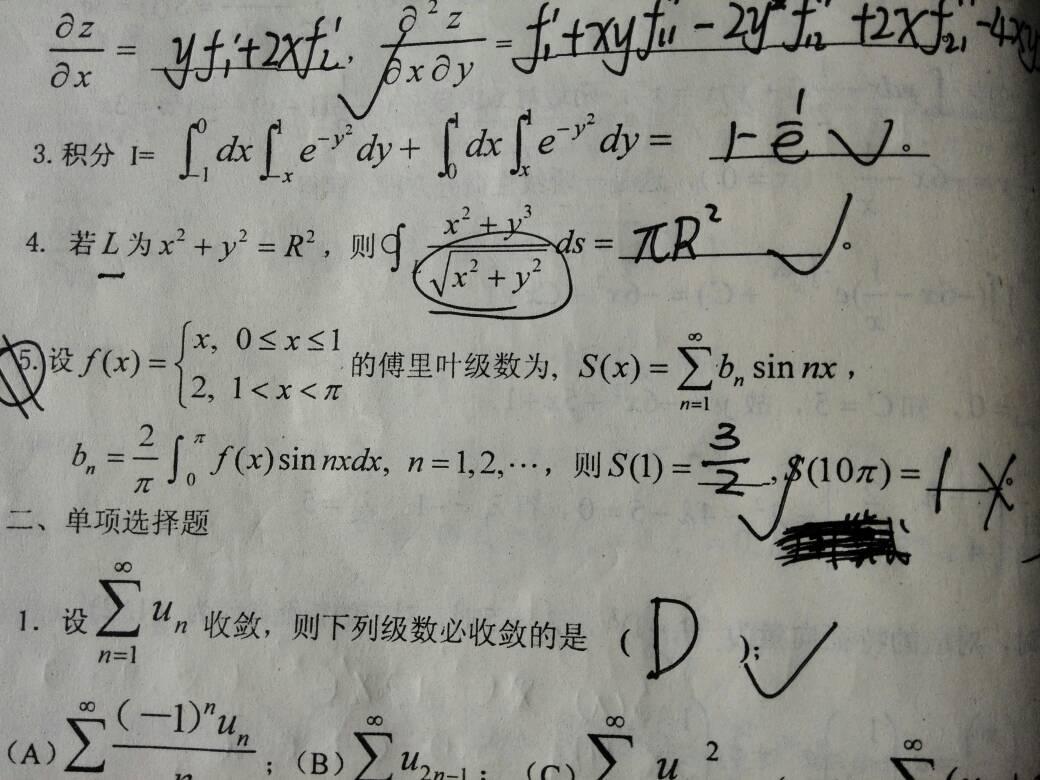 ∂z/∂x = yf₁′+2xf₂′, ∂²z/∂x∂y = f₁′+xyf₁₁″-2y²f₁₂″+2xf₂₁″-4xy
3. 积分 I= ∫₋₁⁰dx∫₋ₓ¹e^(-y²)dy + ∫₀¹dx∫ₓ¹e^(-y²)dy = 1-1/e ✓。
4. 若L为x²+y²=R²，则∮_L (x²+y³)/√(x²+y²) ds = πR² ✓。
5. 设f(x)={x, 0≤x≤1; 2, 1<x<π 的傅里叶级数为, S(x)=∑_{n=1}^∞ bₙ sin nx，
bₙ = 2/π ∫₀^π f(x)sin nxdx, n=1,2,⋯，则S(1)= 3/2 ✓, S(10π)= 1 ✗。
二、单项选择题
1. 设∑_{n=1}^∞ uₙ 收敛，则下列级数必收敛的是（ D ）; ✓
(A) ∑^∞ (-1)ⁿuₙ/n；(B) ∑^∞ u₂ₙ₋₁；(C) ∑^∞ u ² ∑^∞ (